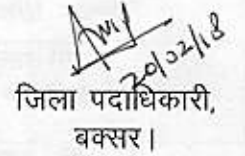 20/02/18
जिला पदाधिकारी,
बक्सर।